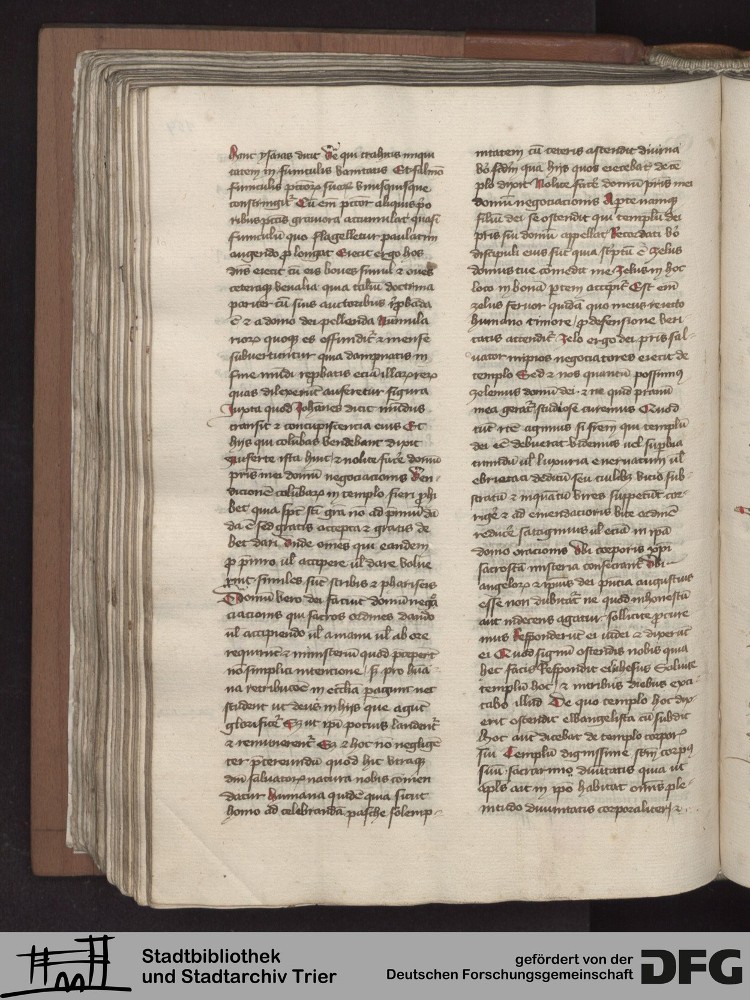 Hinc ysaias dicit Ve qui trahitis iniqui
tatem in funiculis vanitatis Et salmo
funiculis pctor suor vnusquisque
constringit Cu em pctor aliquis pio
ribus pctis grauiora accumulat quasi
funiculu quo flagelletur paulatim
augendo plongat Eiecit ergo hos
dns eiecit cu eis boues simul et oues
ceteraque venalia quia taliu doctrina
pariter cu suis auctoribus
e et a domo dei pellenda
quoque es effundit et mense
subuertuntur quia dampnatis in
fine mudi
quas dilexerut auferetur figura
Iuxta quod Johanes dicit mudus
transit et concupiscencia eius Et
hijs qui columbas vendebant dixit
Auferte ista hinc et nolite facere domu
pris mei domu negociacionis Ven
dicione columbar in templo fieri phi
bet quia spc sci gra no ad pmiu da
da e sed gratis accepta et gratis de
bet dari Vnde omes qui eandem
p pmio ul accipere ul dare volue
rint similes sut scribis et phariseis
Domu vero dei faciut domu nego
ciacionis qui sacros ordines dando
ul accipiendo ul a manu ul ab ore
requirut et ministeriu quod pcepert
no simplici intencione si pro hua
na retribucoe in ecclia pagunt nec
student ut deus in hijs que agut
glorificet Sz ut ipi potius laudent
et remunerent Sz et hoc no neglige
ter ptereundu quod hic vtraque
dni saluatoris natura nobis comen
datur Humana quide quia sicut
homo ad celebranda pasche solemp-
nitatem cu ceteris ascendit diuina
vo scdm qua hijs quos eiecebat de te
plo dixit Nolite facere domu pris mei
domu negociacionis Apte namque
filiu dei se ostendit qui templu dei
pris sui domu appellat Recordati vo
discipuli eius sut quia scriptu e Zelus
domus tue comedit me Zelus in hoc
loco in bona ptem accipit Est em
zelus feruor quidam quo meus reiecto
humano timore p defensione veri
tatis accendit Zelo ergo dei pris sal-
uator impios negociatores eiecit de
templo Sed et nos quantu possimus
zelemus domu dei et ne quid prauu
in ea gerat studiose curemus Quod
tuc rite agimus si frem qui templu
dei ee debuerat videmus uel supbia
tumidu ul luxuria eneruatum ul
ebrietati deditu seu cuilibet vicio sub-
stratu et inquatu vires suppetut cor-
rigere et ad emendacioris vite ordine
reducere satagimus ul eciam in ipa
domo oracionis Vbi corporis xpi
sacrosca misteria consecrant Vbi
angelor et ipius dei pncia augustius
esse non dubitat ne quid inhonestu
aut indecens agatur sollicite pcure
mus Responderut ei iudei et dixerut
ei Quod signu ostendis nobis quia
hec facis Respondit eis ihesus Soluite
templu hoc et in tribus diebus exci
tabo illud De quo templo hoc dix
erit ostendit ewangelista cu subdit
Hoc aut dicebat de templo corpor
sui Templu dignissime scm corpus
suu sacrarium diuinitatis quia ut
apls ait in ipo habitat omis ple-
nitudo diuinitatis corporaliter et
Stadtbibliothek
und Stadtarchiv Trier
gefördert von der
Deutschen Forschungsgemeinschaft
DFG